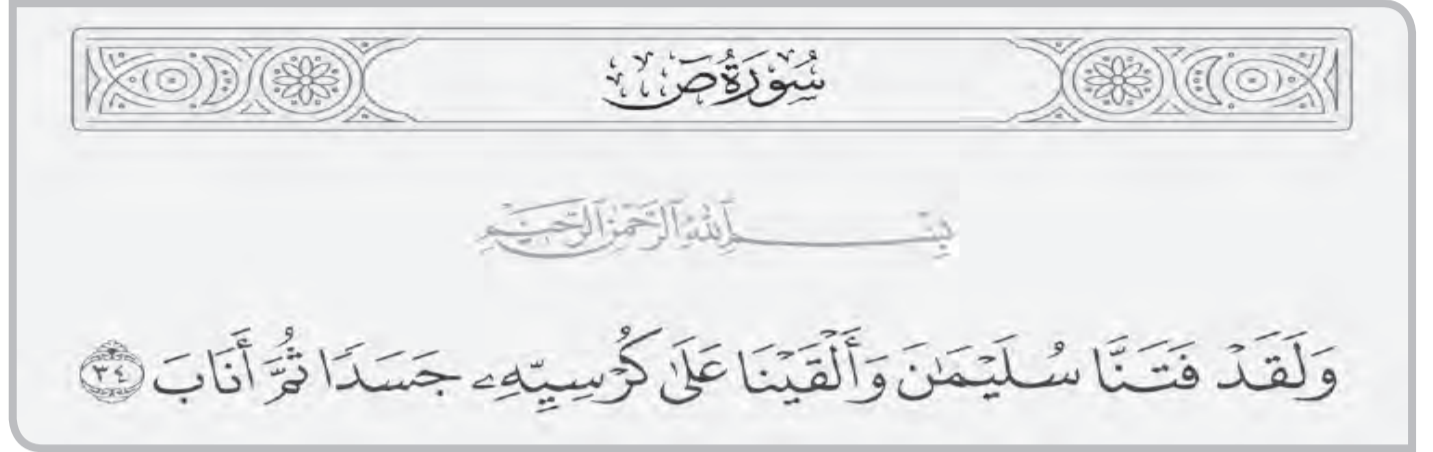 سُورَةُ ص
بِسْمِ ٱللَّهِ ٱلرَّحْمَٰنِ ٱلرَّحِيمِ
وَلَقَدْ فَتَنَّا سُلَيْمَٰنَ وَأَلْقَيْنَا عَلَىٰ كُرْسِيِّهِۦ جَسَدًا ثُمَّ أَنَابَ ٣٤